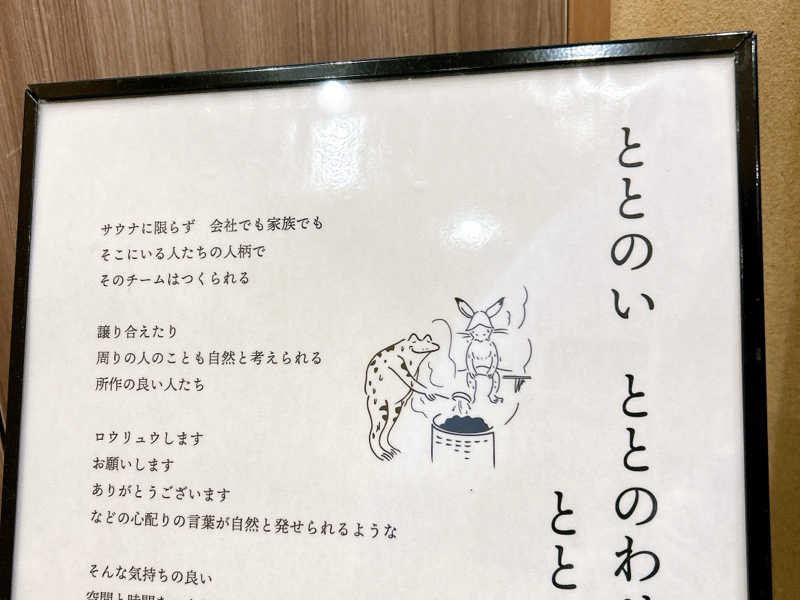 ととのい ととのわ
とと
サウナに限らず 会社でも家族でも
そこにいる人たちの人柄で
そのチームはつくられる
譲り合えたり
周りの人のことも自然と考えられる
所作の良い人たち
ロウリュウします
お願いします
ありがとうございます
などの心配りの言葉が自然と発せられるような
そんな気持ちの良い